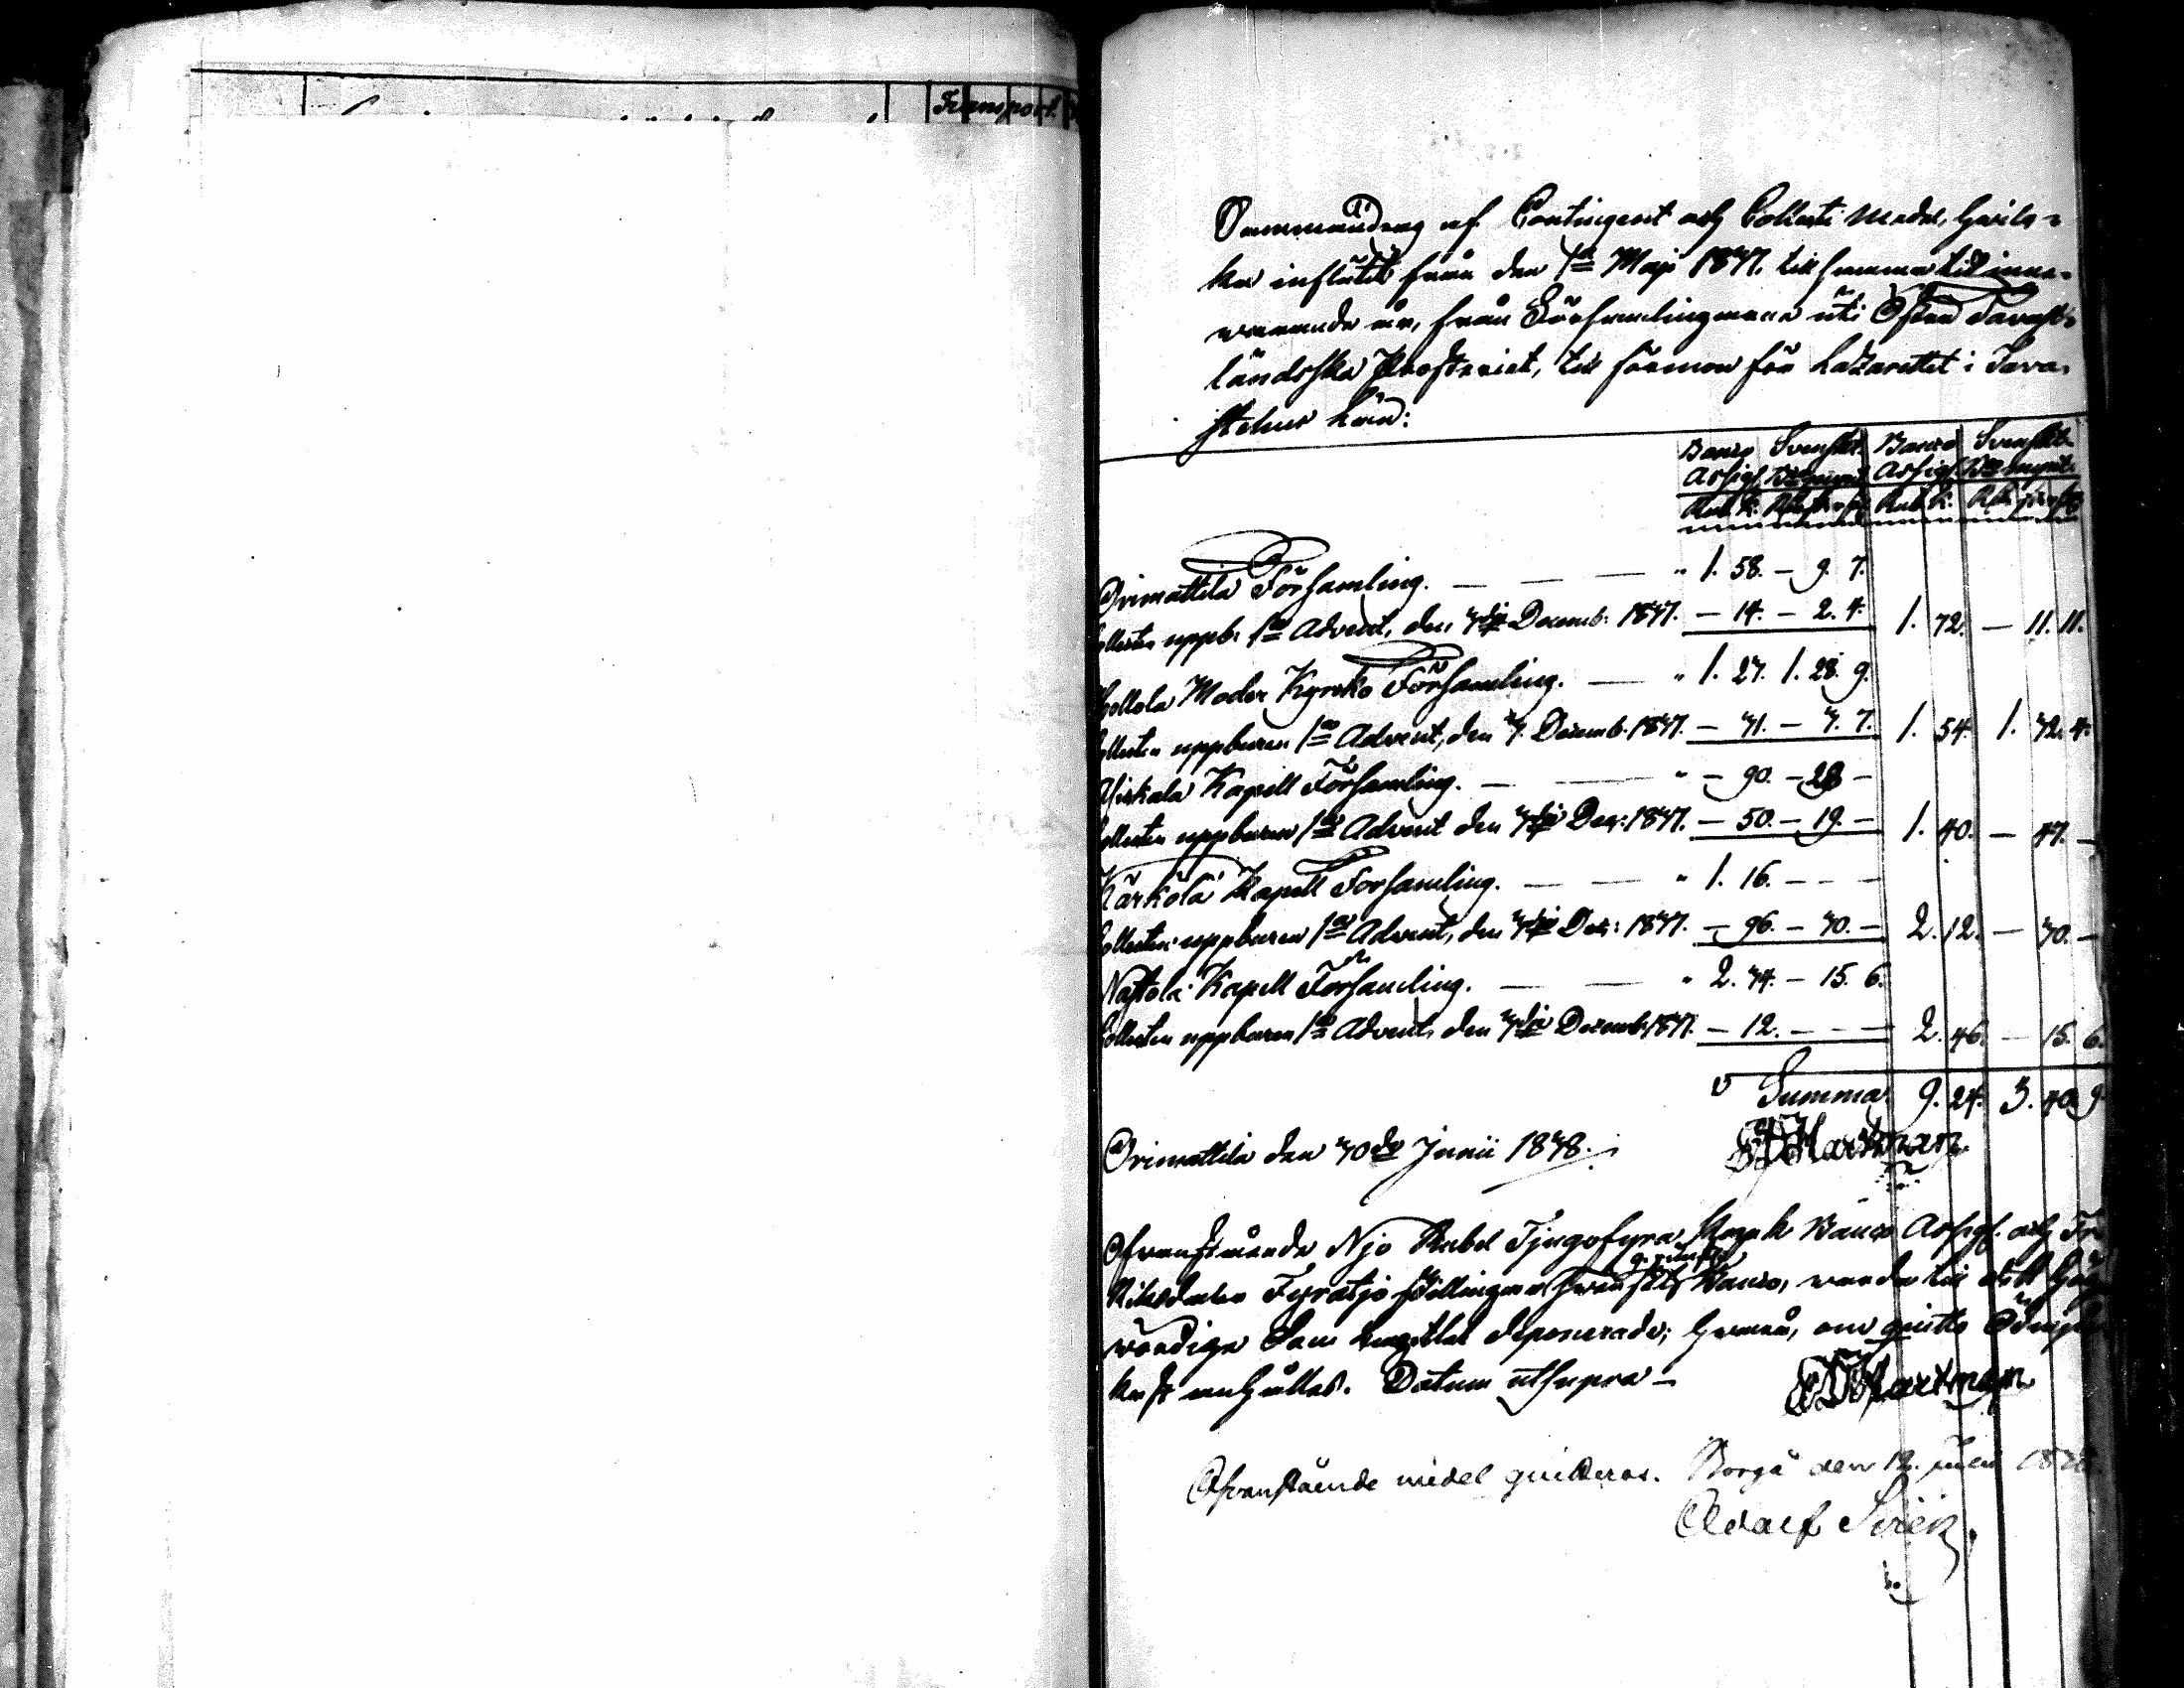 Transport.
Sammandrag af Contingent och Collect Medel, hvil-
ka influtit från den 1sta Maji 1837. till samma tid inne-
warande år, från Församlingarne uti Östra Tavast-
ländska Prosteriet, till förmon för Lazarettet i Tava-
stehus Län:
Banco Svenskt Banco Svenskt
Assigt. Bco mynt Assigt. Bco mynt.
Rub. K. Rdr sk. rst. Rub. K. Rdr sk. rst.
Orimattila Församling. — — — " 1. 58. – 9. 7.
Collecten uppb. 1sta Advent, den 3dje Decemb. 1837. – 14. – 2. 4. 1. 72. – 11. 11.
Hollola Moder Kyrko Församling. — " 1. 23. 1. 28. 9.
Collecten uppburen 1sta Advent, den 3. Decemb. 1837. – 31. – 3. 7. 1. 54. 1. 32. 4.
Kapell Församling. — — " – 90. – 28 –
Collecten uppburen 1sta Advent den 3dje Dec: 1837. – 50. – 19. – 1. 40. – 47. –
Kärkölä Kapell Församling. — — " 1. 16. – – –
Collecten uppburen 1sta Advent, den 3dje Dec: 1837. – 96. – 30. – 2. 12. – 30. –
Nastola Kapell Församling. — — " 2. 34. – 15. 6.
Collecten uppburen 1sta Advent, den 3dje Decemb. 1837. – 12. – – – 2. 46. – 15. 6.
Summa 9. 24. 3. 40. 9
Orimattila den 30de Junii 1838. Hartman
Ofvanstående Nio Rubel Tjugofyra Kopek Banco Assigt. och Tre
Riksdaler Fyratio Skillingar 9 runst. Svenskt Banco, warda till
wördige Dom Capitlet deponerade; hvarom, om quitto
kast anhålles. Datum utsupra – Hartman
Ofvanstående medel quitteras. Borgå den 12. 1838
Adolf Sirén.